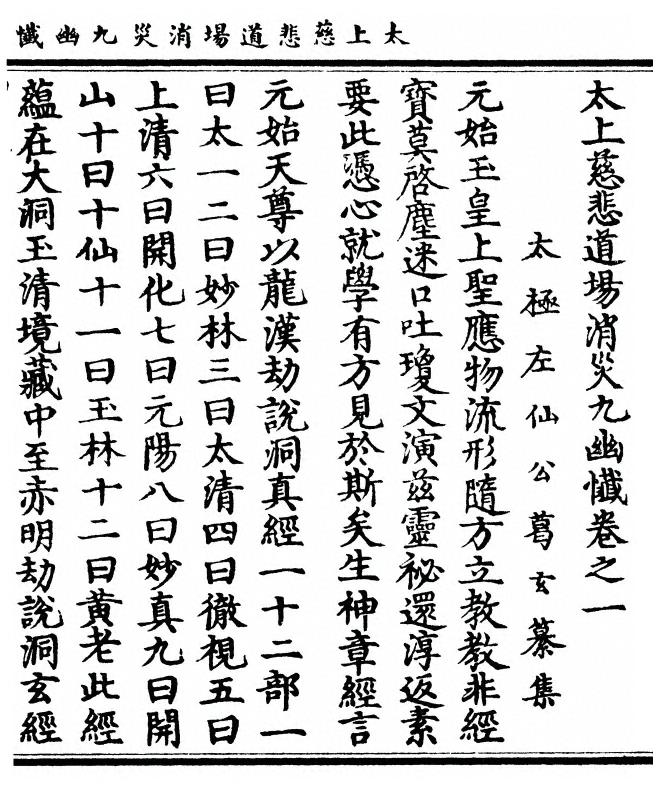 太上慈悲道場消災九幽懺
太上慈悲道場消災九幽懺卷之一
太極左仙公葛玄纂集
元始玉皇上聖應物流形隨方立教教非經
寶莫啓塵迷口吐瓊文演茲靈祕還淳返素
要此憑心就學有方見於斯矣生神章經言
元始天尊以龍漢劫說洞真經一十二部一
曰太一二曰妙林三曰太清四曰徹視五曰
上清六曰開化七曰元陽八曰妙真九曰開
山十曰十仙十一曰玉林十二曰黃老此經
蘊在大洞玉清境藏中至赤明劫說洞玄經